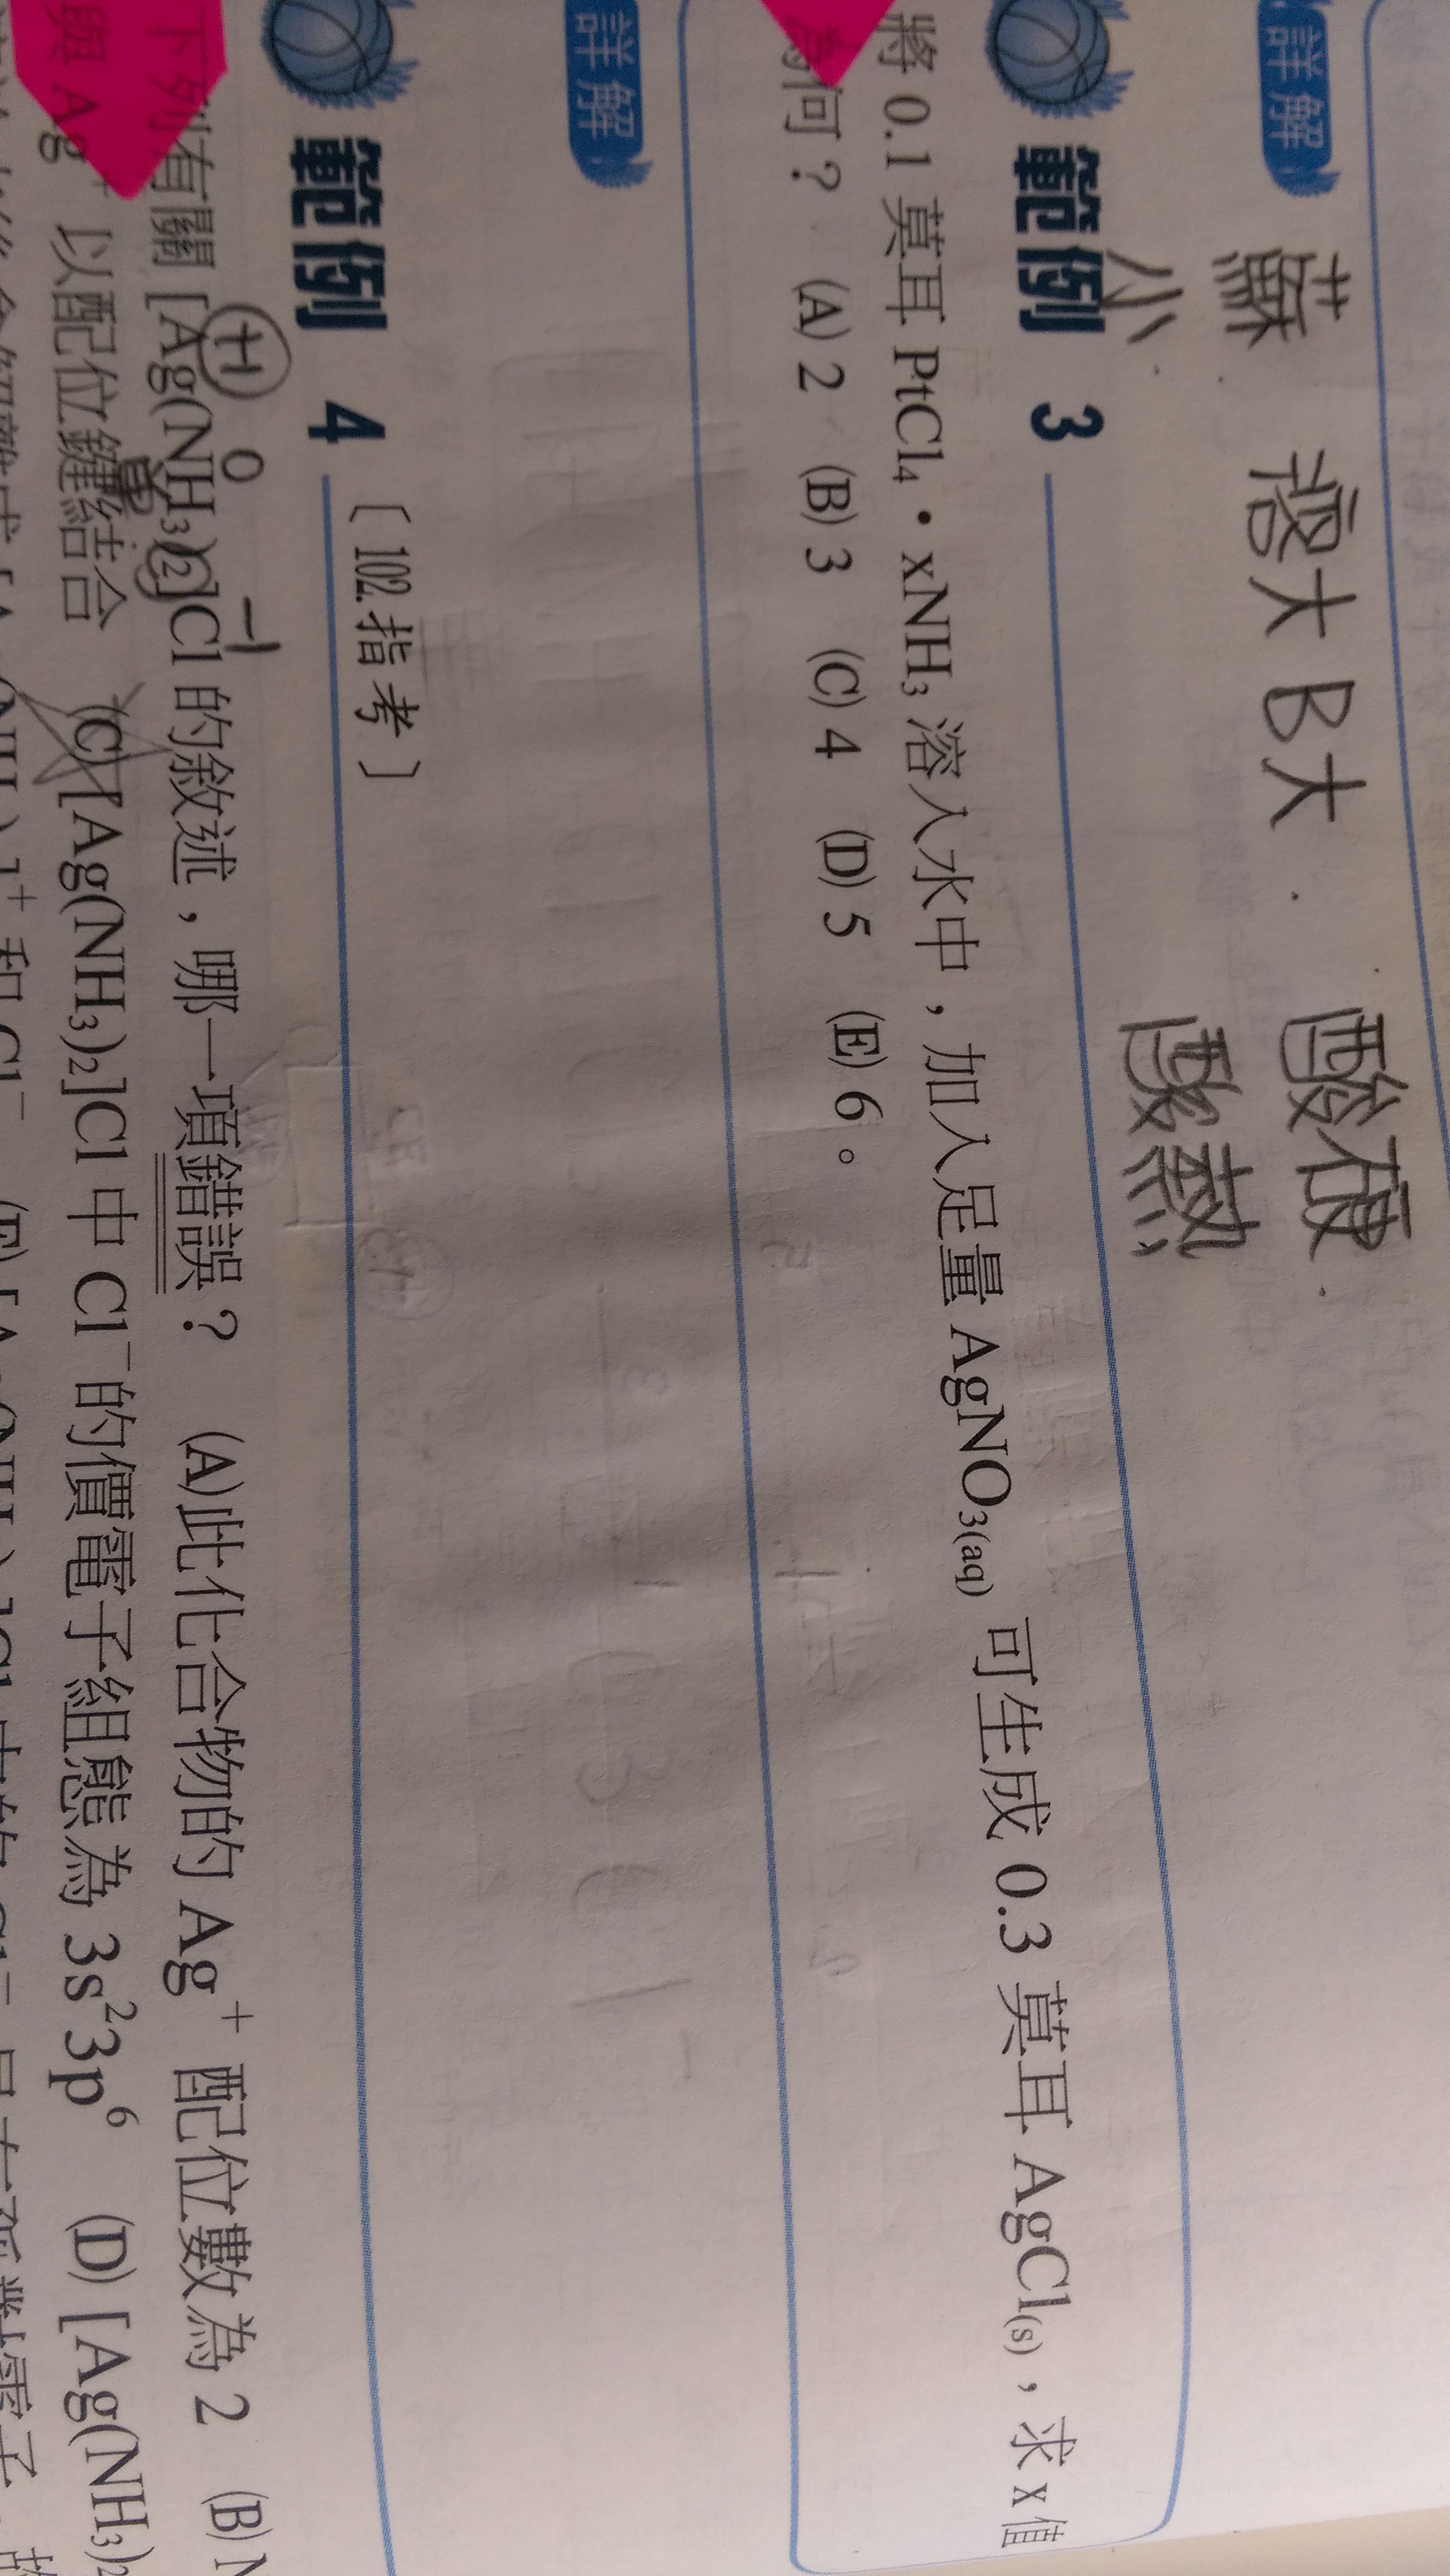 詳解
蘇 大 B大 酸硬
小 酸熱
範例 3
將 0.1 莫耳 PtCl₄・xNH₃ 溶入水中，加入足量 AgNO₃₍aq₎ 可生成 0.3 莫耳 AgCl₍s₎，求 x 值
為何？ (A) 2 (B) 3 (C) 4 (D) 5 (E) 6。
詳解
範例 4 〔102.指考〕
+1 0 -1
下列有關 [Ag(NH₃)₂]Cl 的敘述，哪一項錯誤？ (A)此化合物的 Ag⁺ 配位數為 2 (B)
與 Ag⁺ 以配位鍵結合 (C) [Ag(NH₃)₂]Cl 中 Cl⁻ 的價電子組態為 3s²3p⁶ (D) [Ag(NH₃)₂